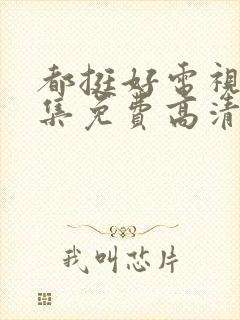 都挺好电視
集免費高清
我叫芯片